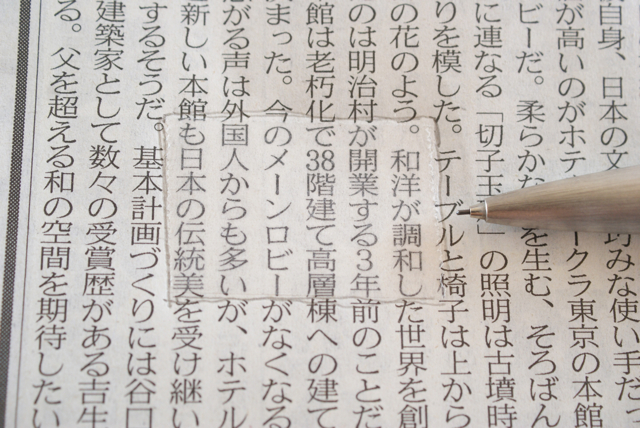 自身、日本の文 巧みな使い手だっ
が高いのがホテ クラ東京の本館
ビーだ。柔らかな を生む、そろばん
に連なる「切子玉」の照明は古墳時
りを模した。テーブルと椅子は上から
の花のよう。和洋が調和した世界を創
のは明治村が開業する3年前のことだ
館は老朽化で38階建て高層棟への建て
まった。今のメーンロビーがなくなる
がる声は外国人からも多いが、ホテル
新しい本館も日本の伝統美を受け継い
するそうだ。基本計画づくりには谷口
建築家として数々の受賞歴がある吉生
る。父を超える和の空間を期待したい